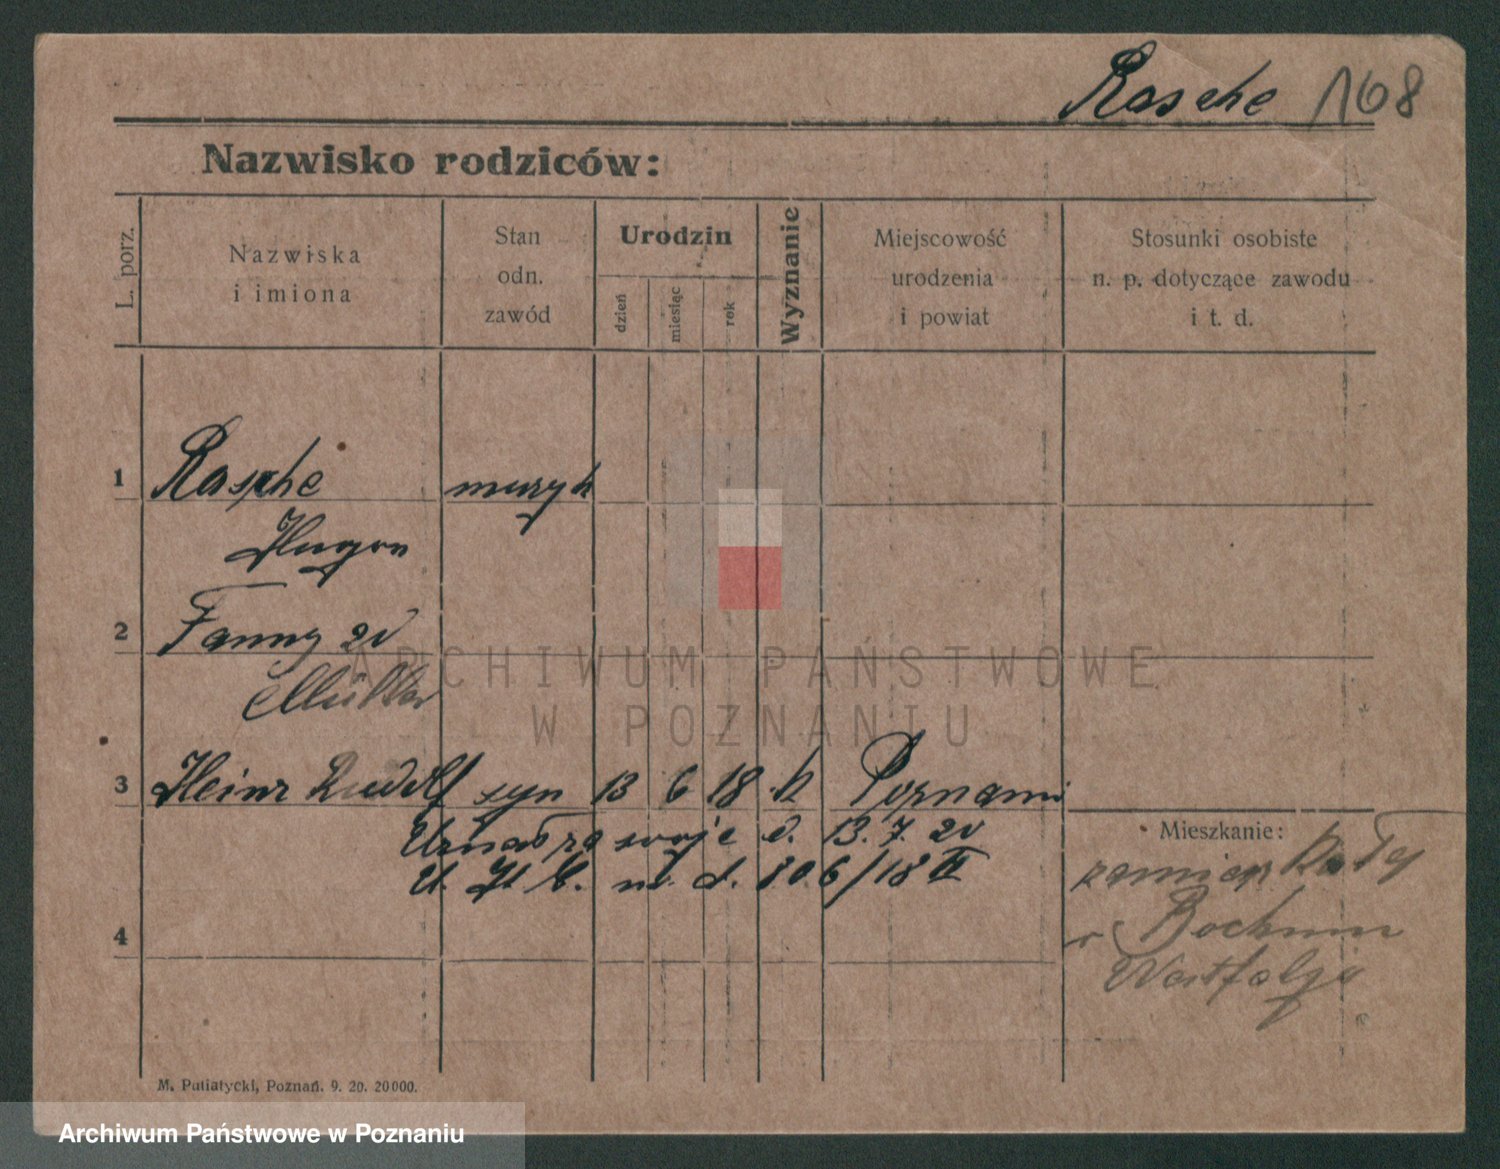 Rasche 168
Nazwisko rodziców:
L. porz.
Nazwiska
i imiona
Stan
odn.
zawód
Urodzin
dzień
miesiąc
rok
Wyznanie
Miejscowość
urodzenia
i powiat
Stosunki osobiste
n. p. dotyczące zawodu
i t. d.
1 Rasche muzyk
Hugon
2 Fanny zd
Müller
3 Heinz Rudolf syn 13 6 18 k Poznaniu
Uznał za swoje d. 13. 7. 20
806/18
Mieszkanie:
4
Bochum
Westfalja
M. Putiatycki, Poznań. 9. 20. 20000.
ARCHIWUM PAŃSTWOWE
W POZNANIU
Archiwum Państwowe w Poznaniu